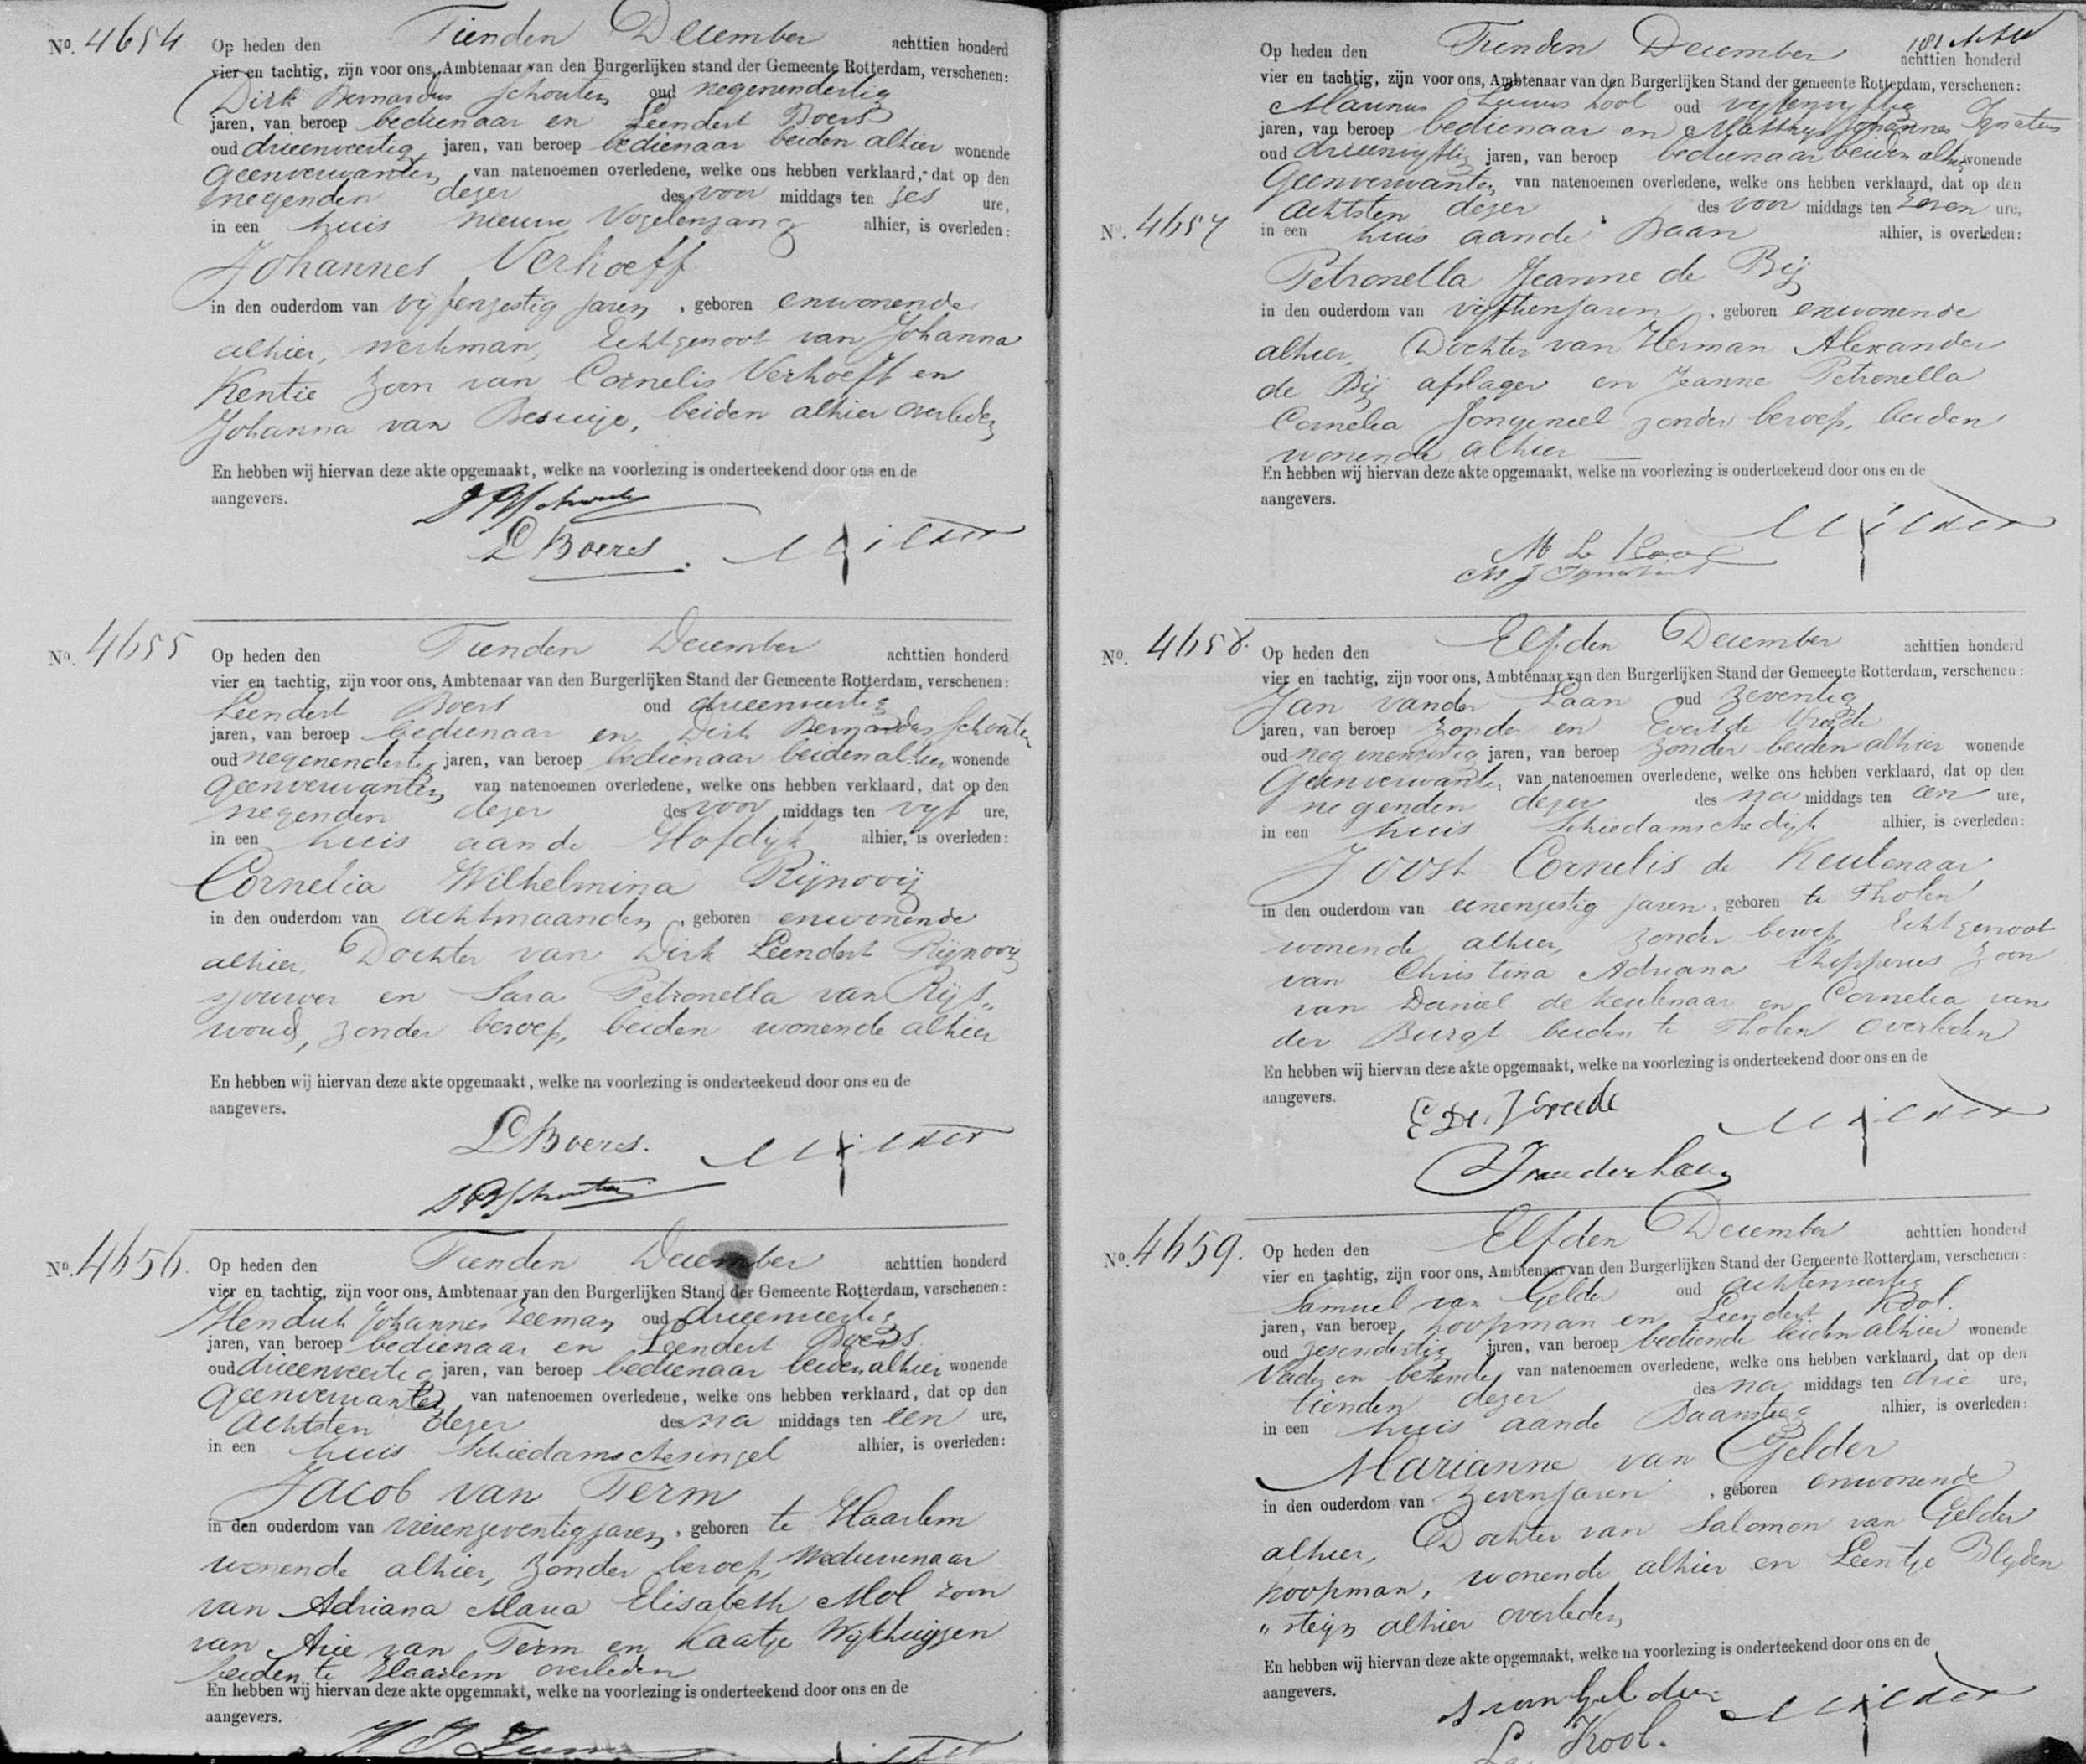 No. 4654 Op heden den Tienden December achttien honderd
vier en tachtig, zijn voor ons, Ambtenaar van den Burgerlijken stand der Gemeente Rotterdam, verschenen:
Dirk Bernardus Schouten oud negenendertig
jaren, van beroep bedienaar en Leendert Boers
oud drieenveertig jaren, van beroep bedienaar beiden alhier wonende
geenverwanten van natenoemen overledene, welke ons hebben verklaard, dat op den
negenden dezer des voor middags ten zes ure,
in een huis nieuwe Vogelenzang alhier, is overleden:
Johannes Verhoeff
in den ouderdom van vijfenzestig jaren, geboren enwonende
alhier, werkman, Echtgenoot van Johanna
Kentie zoon van Cornelis Verhoeff en
Johanna van Beseuije, beiden alhier overleden
En hebben wij hiervan deze akte opgemaakt, welke na voorlezing is onderteekend door ons en de
aangevers.
D B Schouten
L Boers
No. 4655 Op heden den Tienden December achttien honderd
vier en tachtig, zijn voor ons, Ambtenaar van den Burgerlijken Stand der Gemeente Rotterdam, verschenen:
Leendert Boers oud drieenveertig
jaren, van beroep bedienaar en Dirk Bernardus Schouten
oud negenendertig jaren, van beroep bedienaar beiden alhier wonende
geenverwanten van natenoemen overledene, welke ons hebben verklaard, dat op den
negenden dezer des voor middags ten vijf ure,
in een huis aande Hofdijk alhier, is overleden:
Cornelia Wilhelmina Rijnooij
in den ouderdom van achtmaanden, geboren enwonende
alhier, Dochter van Dirk Leendert Rijnooij
sjouwer en Sara Petronella van Rijs„
woud, zonder beroep, beiden wonende alhier
En hebben wij hiervan deze akte opgemaakt, welke na voorlezing is onderteekend door ons en de
aangevers.
L Boers.
D B Schouten
No. 4656. Op heden den Tienden December achttien honderd
vier en tachtig, zijn voor ons, Ambtenaar van den Burgerlijken Stand der Gemeente Rotterdam, verschenen:
Hendrik Johannes Zeeman oud drieenveertig
jaren, van beroep bedienaar en Leendert Boers
oud drieenveertig jaren, van beroep bedienaar beiden alhier wonende
geenverwanten van natenoemen overledene, welke ons hebben verklaard, dat op den
achtsten dezer des na middags ten een ure,
in een huis Schiedamschesingel alhier, is overleden:
Jacob van Term
in den ouderdom van vierenzeventigjaren, geboren te Haarlem
wonende alhier, zonder beroep, Weduwenaar
van Adriana Maria Elisabeth Mol zoon
van Arie van Term en Kaatje Wijkhuijzen
beiden te Haarlem overleden
En hebben wij hiervan deze akte opgemaakt, welke na voorlezing is onderteekend door ons en de
aangevers.
Op heden den Tienden December achttien honderd
vier en tachtig, zijn voor ons, Ambtenaar van den Burgerlijken Stand der gemeente Rotterdam, verschenen:
Marinus Kool oud vijfenvijftig
jaren, van beroep bedienaar en Matthijs Johannes Ignatius
oud drieenvijftig jaren, van beroep bedienaar beiden alhier wonende
Geenverwanten van natenoemen overledene, welke ons hebben verklaard, dat op den
achtsten dezer des voor middags ten zeven ure,
No. 4657 in een huis aande Baan alhier, is overleden:
Petronella Jeanne de Bij
in den ouderdom van vijftienjaren, geboren enwonende
alhier, Dochter van Herman Alexander
de Bij afslager en Jeanne Petronella
Cornelia Jongeneel zonder beroep, beiden
wonende alhier
En hebben wij hiervan deze akte opgemaakt, welke na voorlezing is onderteekend door ons en de
aangevers.
M L Kool
M J Ignatius
No. 4658. Op heden den Elfden December achttien honderd
vier en tachtig, zijn voor ons, Ambtenaar van den Burgerlijken Stand der Gemeente Rotterdam, verschenen:
Jan vander Laan oud zeventig
jaren, van beroep zonder en Evert de Vreede
oud negenenzestig jaren, van beroep zonder beiden alhier wonende
Geenverwanten van natenoemen overledene, welke ons hebben verklaard, dat op den
negenden dezer des na middags ten een ure,
in een huis Schiedamschedijk alhier, is overleden:
Joost Cornelis de Keulenaar
in den ouderdom van eenenzestig jaren, geboren te Tholen
wonende alhier, zonder beroep, Echtgenoot
van Christina Adriana Schepperus zoon
van Daniel de Keulenaar en Cornelia van
der Burgt beiden te Tholen overleden
En hebben wij hiervan deze akte opgemaakt, welke na voorlezing is onderteekend door ons en de
aangevers.
E De Vreede
J vanderLaan
No. 4659. Op heden den Elfden December achttien honderd
vier en tachtig, zijn voor ons, Ambtenaar van den Burgerlijken Stand der Gemeente Rotterdam, verschenen:
Samuel van Gelder oud achtenveertig
jaren, van beroep koopman en Leendert Kool.
oud zesendertig jaren, van beroep bediende beiden alhier wonende
Vader en bekende van natenoemen overledene, welke ons hebben verklaard, dat op den
tienden dezer des na middags ten drie ure,
in een huis aande Baansteeg alhier, is overleden:
Marianne van Gelder
in den ouderdom van zevenjaren, geboren enwonende
alhier, Dochter van Salomon van Gelder
koopman, wonende alhier en Leentje Blijden
„steijn alhier overleden,
En hebben wij hiervan deze akte opgemaakt, welke na voorlezing is onderteekend door ons en de
aangevers.
S van Gelder
L Kool.